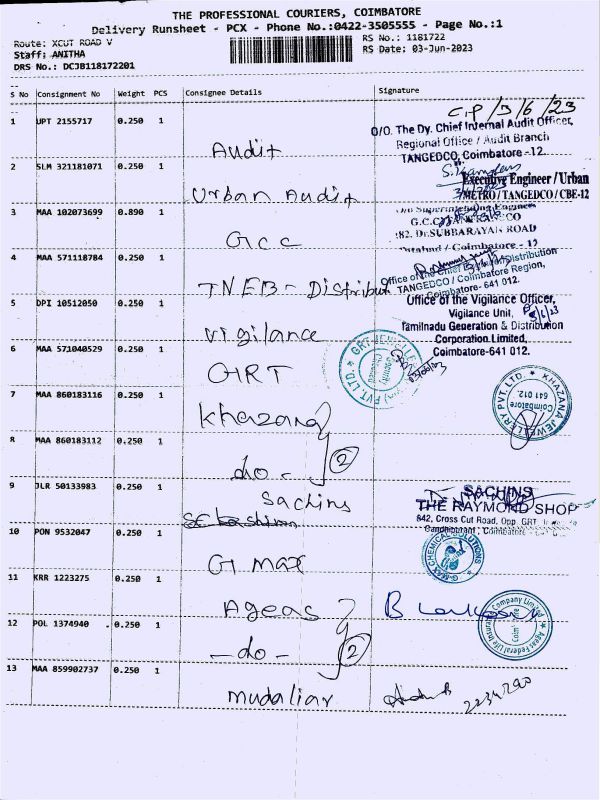 THE PROFESSIONAL COURIERS, COIMBATORE
Delivery Runsheet - PCX - Phone No.:0422-3505555 - Page No.:1
Route: XCUT ROAD V
RS No.: 1181722
Staff: ANITHA
RS Date: 03-Jun-2023
DRS No.: DCJB118172201
S No Consignment No Weight PCS Consignee Details Signature
1 UPT 2155717 0.250 1 Audit
C.P/3/6/23
O/O. The Dy. Chief Internal Audit Officer,
Regional Office / Audit Branch
TANGEDCO, Coimbatore -12.
2 SLM 321181071 0.250 1 Urban Audit
Executive Engineer / Urban
METRO / TANGEDCO / CBE-12
3 MAA 102073699 0.890 1 GCC
O/o Superintending Engineer
SUBBARAYAN ROAD
Tatabad / Coimbatore - 12
4 MAA 571118784 0.250 1 TNEB - Distribut
Office of the Chief Distribution
TANGEDCO / Coimbatore Region,
Coimbatore- 641 012.
5 DPI 10512050 0.250 1 Vigilance
Office of the Vigilance Officer,
Vigilance Unit,
Tamilnadu Generation & Distribution
Corporation Limited,
Coimbatore-641 012.
6 MAA 571040529 0.250 1 GRT
GRT JEWELLERS PVT. LTD.
Security
7 MAA 860183116 0.250 1 Khazana
KHAZANA JEWELLERY PVT. LTD.
Coimbatore
641 012.
8 MAA 860183112 0.250 1 -do- 2
9 JLR 50133983 0.250 1 Sachins
SACHINS
THE RAYMOND SHOP
642, Cross Cut Road, Opp. GRT
Gandhipuram, Coimbatore
10 PON 9532047 0.250 1 G max
G-MAX CHEMICAL SOLUTIONS
11 KRR 1223275 0.250 1 Ageas
Ageas Federal Life Insurance Company Limited
12 POL 1374940 0.250 1 -do- 2
13 MAA 859902737 0.250 1 mudaliar